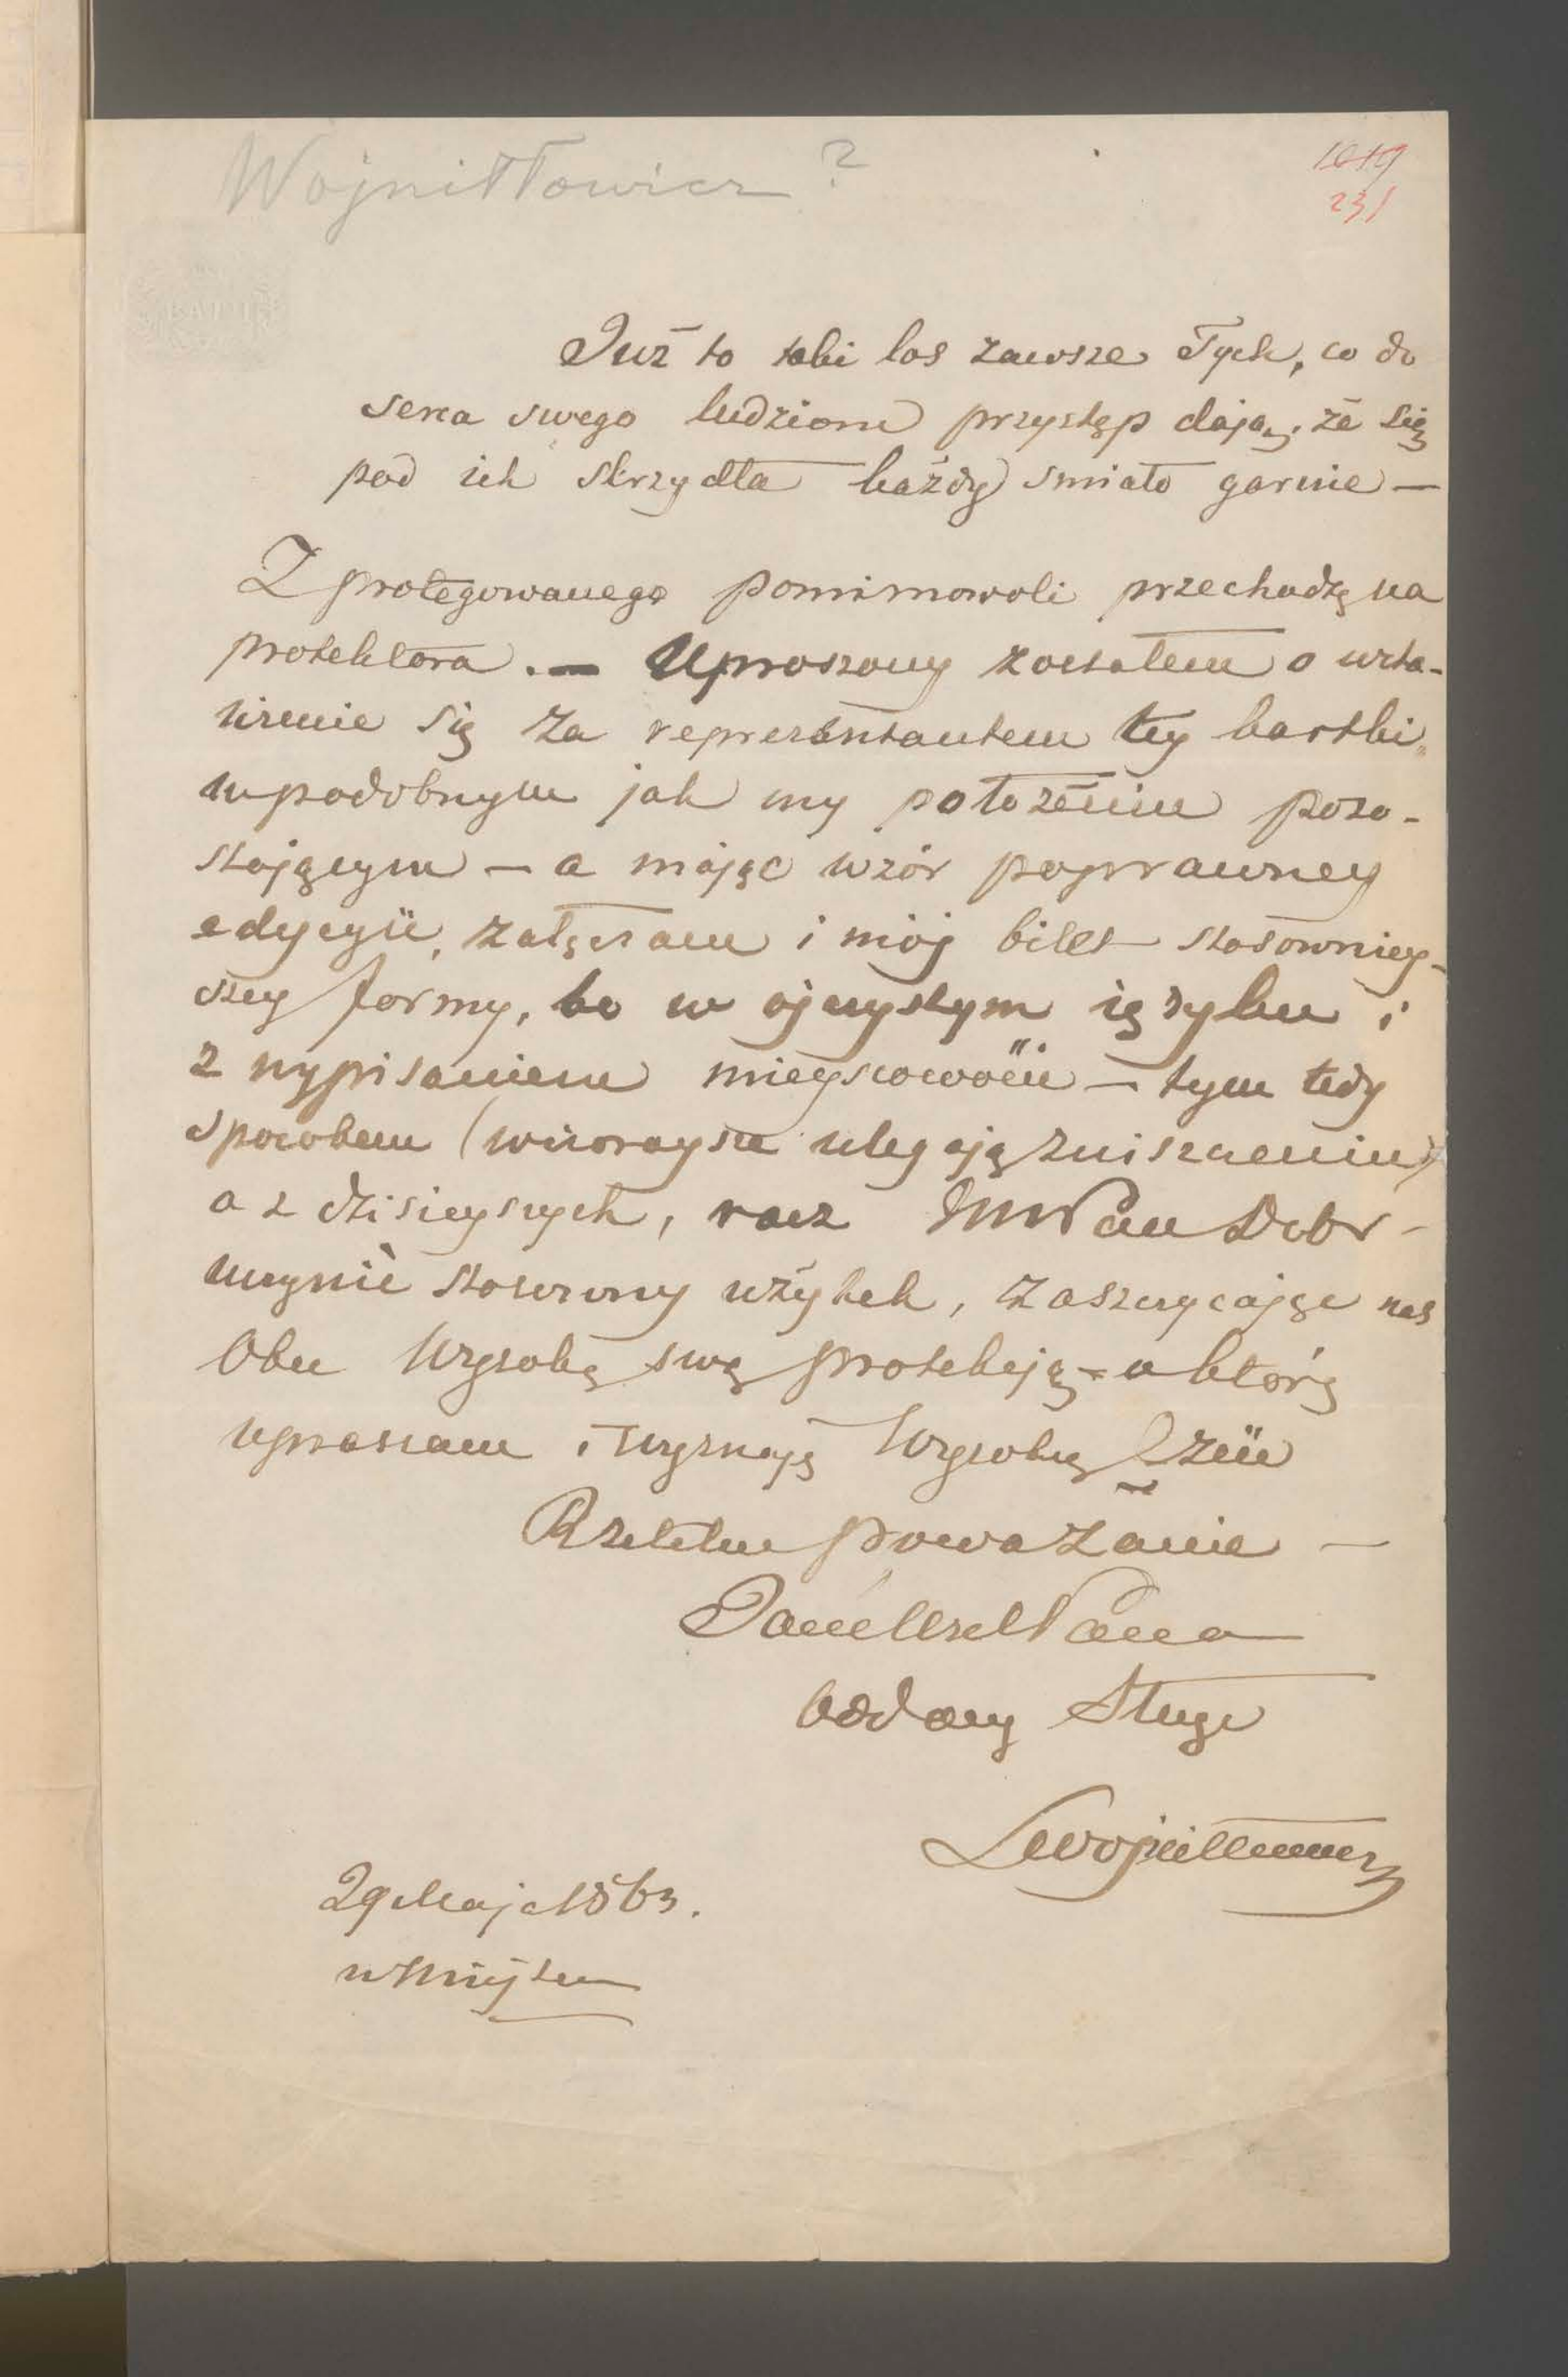 Wojniłłowicz ?
1019
231
Już to taki los zawsze Tych, co do
serca swego ludziom przystęp dają, że się
pod ich skrzydła każdy smiało garnie —
Z protegowanego pomimowoli przechodzę na
protektora. — Uproszony zostałem o wsta-
wienie się za reprezentantem tey kartki,
w podobnym jak my położeniu pozo-
stającym — a mając wzór poprawney
edycyii, załączam i mój bilet stosowniey-
szey formy, bo w ojczystym ięzyku i
z wypisaniem mieyscowości — tym tedy
sposobem (wczoraysze ulegają zniszczeniu)
a z dzisieyszych, racz Pan Dobr
uczynić stosowny użytek, zaszczycając nas
Obu Wysoką swą protekcją — o którą
upraszam i wyznaję Wysoką Cześć
Rzetelne poważanie —
Pana
oddany Sługa
29 Maja 1863.
w Mieyscu